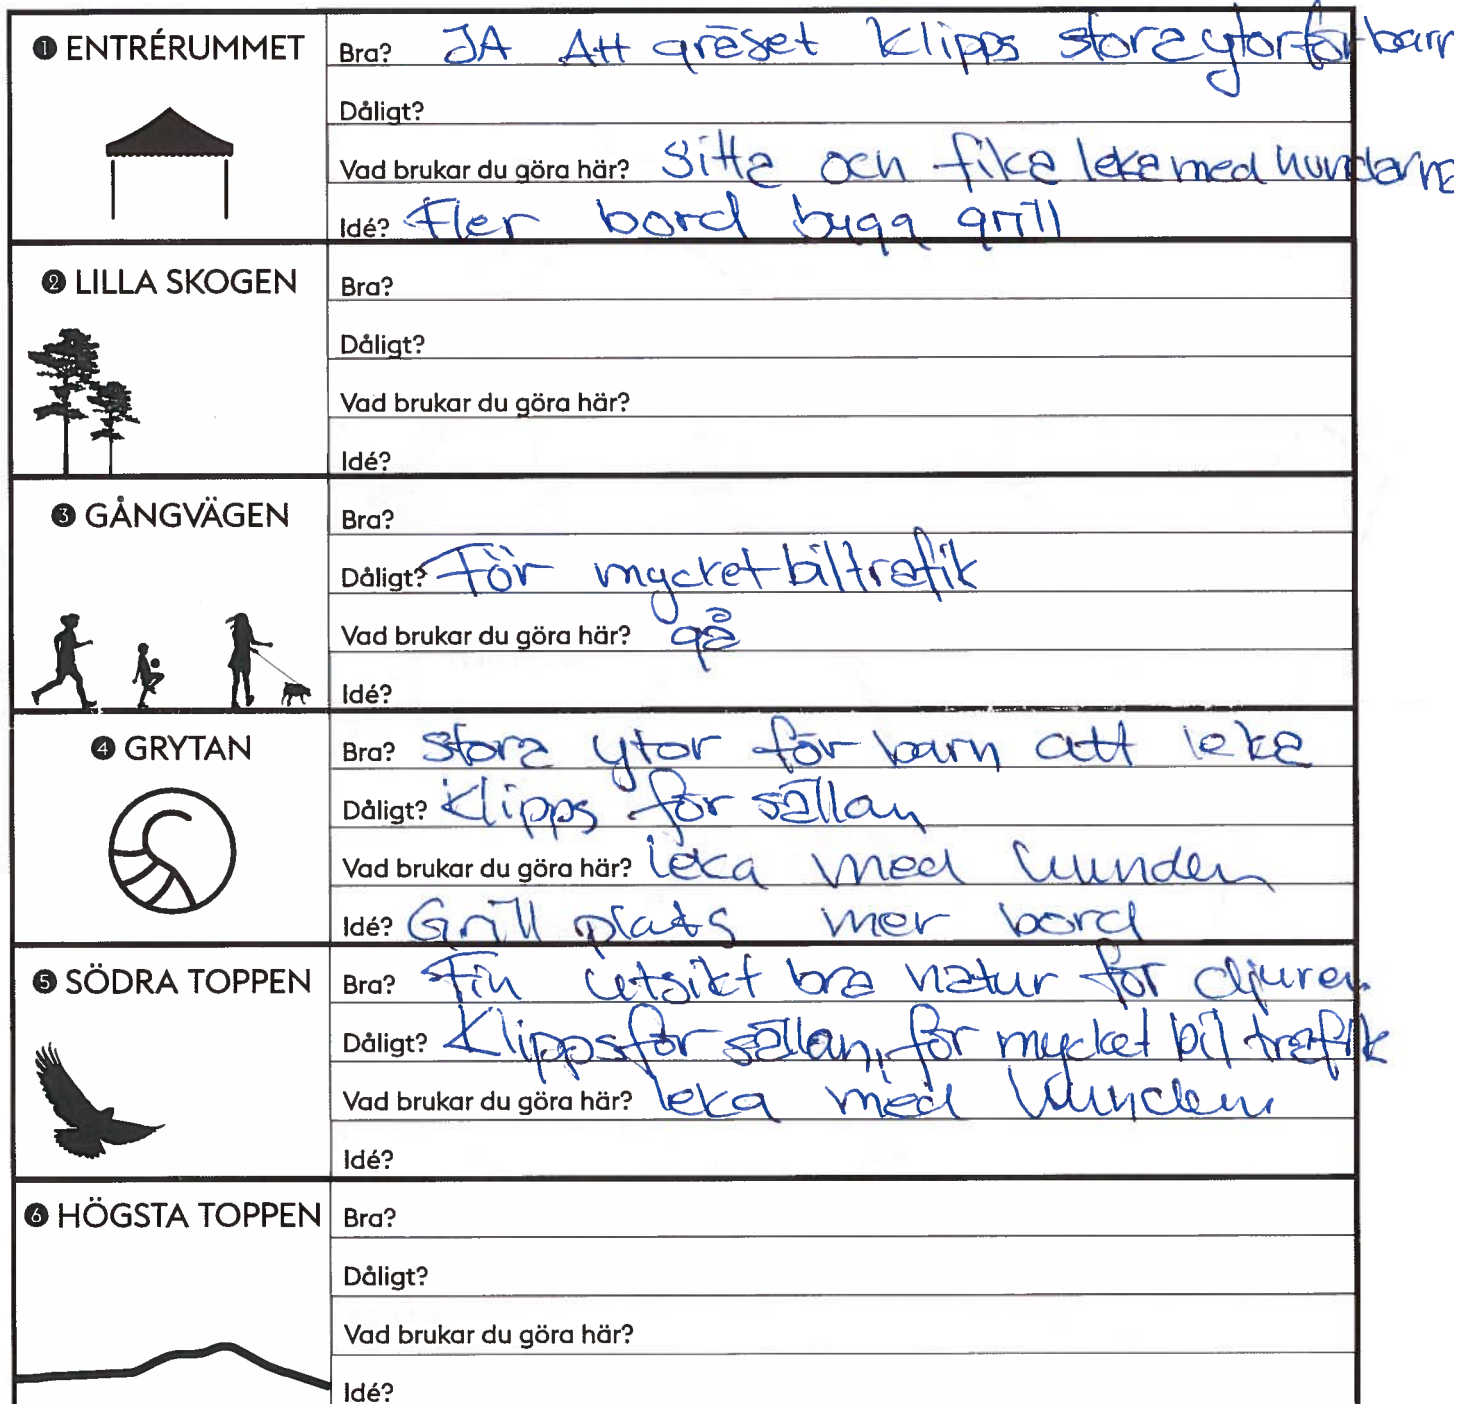 ❶ ENTRÉRUMMET
Bra? JA Att gräset klipps stora ytor för barn
Dåligt?
Vad brukar du göra här? Sitta och fika leka med hundarna
Idé? Fler bord bygg grill
❷ LILLA SKOGEN
Bra?
Dåligt?
Vad brukar du göra här?
Idé?
❸ GÅNGVÄGEN
Bra?
Dåligt? För mycket biltrafik
Vad brukar du göra här? gå
Idé?
❹ GRYTAN
Bra? stora ytor för barn att leka
Dåligt? Klipps för sällan
Vad brukar du göra här? leka med hunden
Idé? Grill plats mer bord
❺ SÖDRA TOPPEN
Bra? Fin utsikt bra natur för djuren
Dåligt? Klipps för sällan, för mycket bil trafik
Vad brukar du göra här? leka med hunden
Idé?
❻ HÖGSTA TOPPEN
Bra?
Dåligt?
Vad brukar du göra här?
Idé?